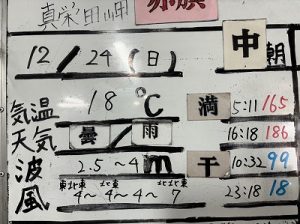 真栄田岬 赤旗
12/24(日) 中 朝
気温 18℃ 満 5:11 165
天気 曇/雨 16:18 186
波 2.5〜4m 干 10:32 99
東北東 北東 北北東
風 4〜 4〜 4〜 7 23:18 18